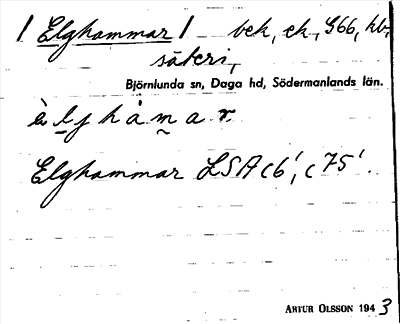 / Elghammar / bek, ek, G66, hb,
säteri,
Björnlunda sn, Daga hd, Södermanlands län.
è l j h à m a r.
Elghammar LSA c6', c75'.
ARTUR OLSSON 1943